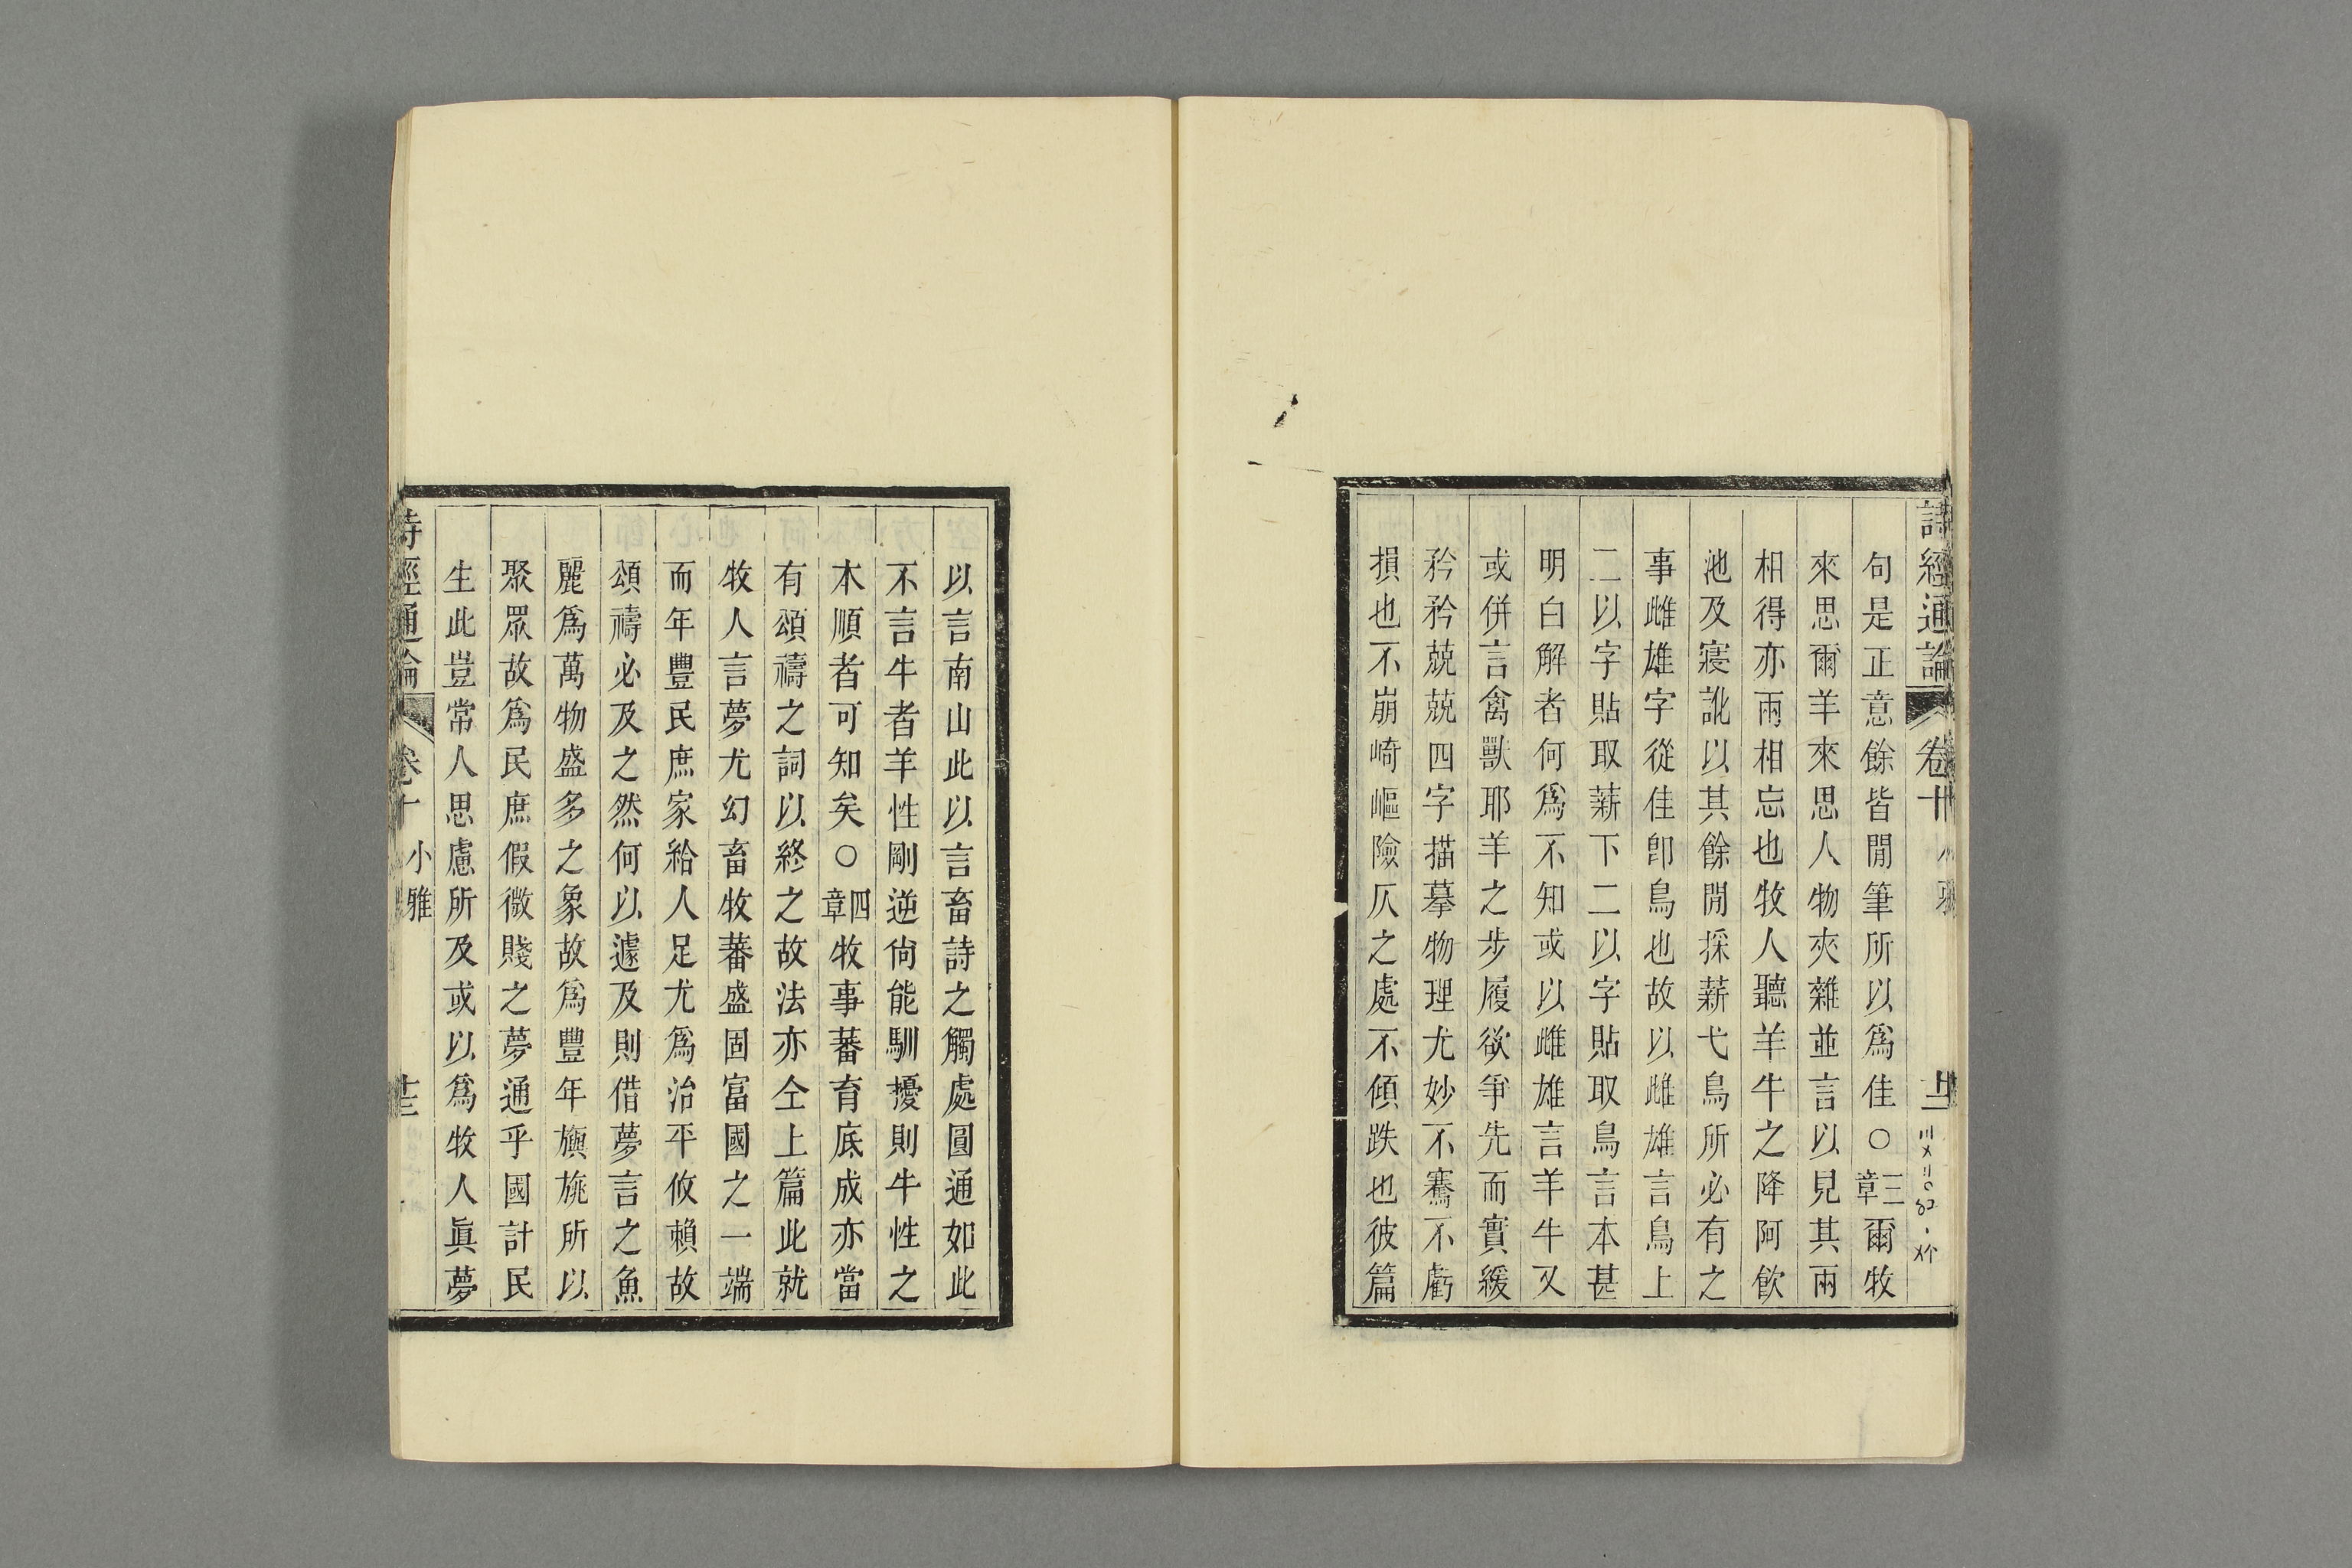 詩經通論 卷十 小雅
句是正意餘皆閒筆所以爲佳○三章爾牧
來思爾羊來思人物夾雜並言以見其兩
相得亦兩相忘也牧人聽羊牛之降阿飮
池及寢訛以其餘閒採薪弋鳥所必有之
事雌雄字從隹卽鳥也故以雌雄言鳥上
二以字貼取薪下二以字貼取鳥言本甚
明白解者何爲不知或以雌雄言羊牛又
或併言禽獸耶羊之步履欲爭先而實緩
矜矜兢兢四字描摹物理尤妙不騫不虧
損也不崩崎嶇險仄之處不傾跌也彼篇
以言南山此以言畜詩之觸處圓通如此
不言牛者羊性剛逆尙能馴擾則牛性之
本順者可知矣○四章牧事蕃育底成亦當
有頌禱之詞以終之故法亦仝上篇此就
牧人言夢尤幻畜牧蕃盛固富國之一端
而年豐民庶家給人足尤爲治平攸賴故
頌禱必及之然何以遽及則借夢言之魚
麗爲萬物盛多之象故爲豐年旟旐所以
聚眾故爲民庶假微賤之夢通乎國計民
生此豈常人思慮所及或以爲牧人眞夢
詩經通論 卷十 小雅 十三